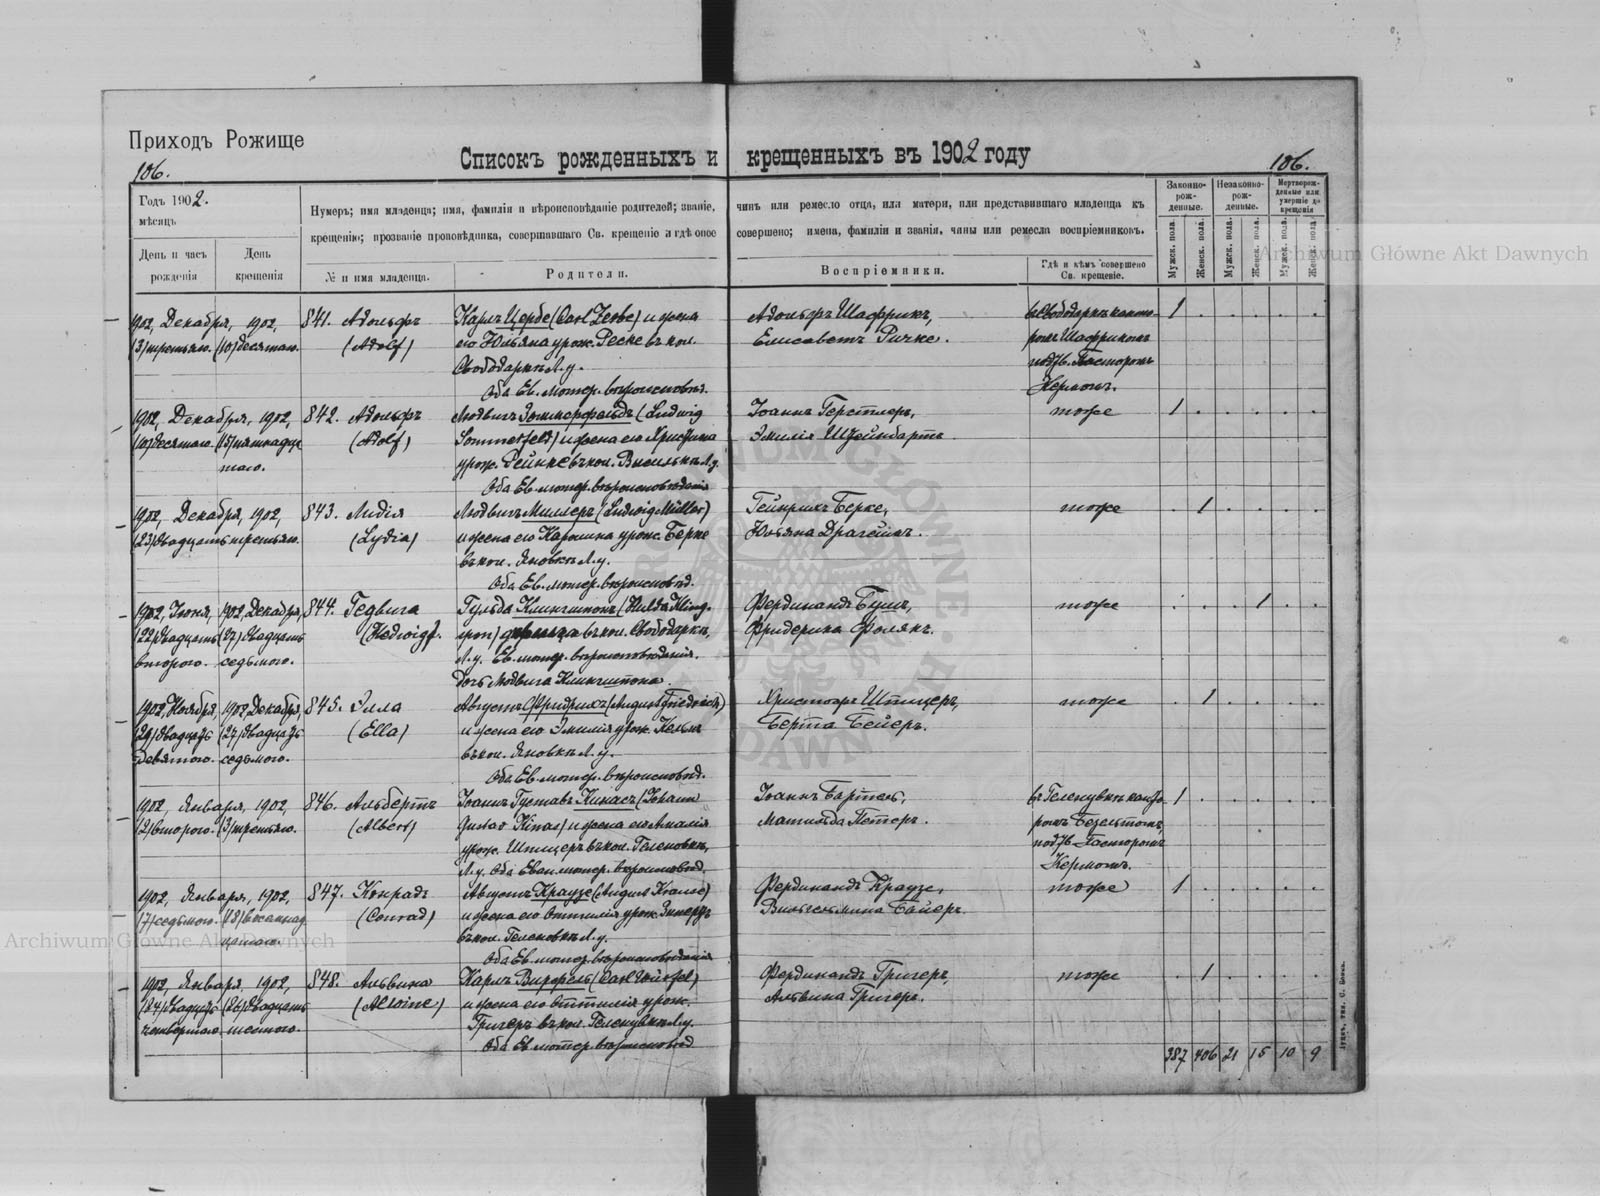 Приходъ Рожище
106.
Списокъ рожденныхъ и крещенныхъ въ 1902 году
106.
Годъ 1902.
мѣсяцъ
День и часъ рожденія
День крещенія
Нумеръ; имя младенца; имя, фамилія и вѣроисповѣданіе родителей; званіе, чинъ или ремесло отца, или матери, или представившаго младенца къ
крещенію; прозваніе проповѣдника, совершавшаго Св. крещеніе и гдѣ оное совершено; имена, фамиліи и званія, чины или ремесла воспріемниковъ.
№ и имя младенца.
Родители.
Воспріемники.
Гдѣ и кѣмъ совершено Св. крещеніе.
Законно-рож-денные.
Незаконно-рож-денные.
Мертворож-денные или умершіе до крещенія
Мужск. пола.
Женск. пола.
Мужск. пола.
Женск. пола.
Мужск. пола.
Женск. пола
1902, Декабря, 1902, 841. Адольфъ Карлъ Цербе (Carl Zerbe) и жена Адольфъ Шафрикъ, 1
(3) третьяго. (10) десятаго. (Adolf) его Юльяна урож. Реске въ кол. Елисаветъ Ричке.
Свободаркѣ Л. у. Пасторомъ
Оба Ев. лютер. вѣроисповѣд. Кермомъ.
1902, Декабря, 1902, 842. Адольфъ Людвигъ Зоммерфельдъ (Ludwig Іоаннъ Герстлеръ, тоже 1
(10) десятаго. (15) пятнадца (Adolf) Sommerfeld) и жена его Христина Эмилія Штейнбартъ
таго. урож. Рейнке въ кол. Л. у.
Оба Ев. лютер. вѣроисповѣданія
1902, Декабря, 1902, 843. Лидія Людвигъ Миллеръ (Ludwig Müller) Гейнрихъ Берке, тоже 1
(23) двадцать третьяго. (Lydia) и жена его Каролина урож. Берке Юльяна
въ кол. Яновкѣ Л. у.
Оба Ев. лютер. вѣроисповѣд.
1902, Іюня, 1902, Декабря, 844. Гедвига Гульда (Hulda Kling- Фердинандъ Бушъ, тоже 1
(22) двадцать (27) двадцать (Hedwig). въ кол. Свободаркѣ, Фридерика Фолякъ.
второго. седьмого. Л. у. Ев. лютер. вѣроисповѣданія.
дочь Людвига
1902, Ноября, 1902, Декабря, 845. Элла Августъ Фридрихъ (August Friedrich) Христофъ Штицеръ, тоже 1
(29) двадцать (27) двадцать (Ella) и жена его Эмилія урож. Берта Бейеръ.
девятого. седьмого. въ кол. Яновкѣ Л. у.
Оба Ев. лютер. вѣроисповѣд.
1902, Января, 1902, 846. Альбертъ Іоаннъ Густавъ Кинасъ (Johann Іоаннъ Бартель, 1
(2) второго. (3) третьяго. (Albert) Gustav Kinas) и жена его Амалія Матильда Петеръ.
урож. Штицеръ въ кол. Геленовкѣ, Пасторомъ
Л. у. Оба Еван. лютер. вѣроисповѣд. Кермомъ.
1902, Января, 1902, 847. Конрадъ Августъ Краузе (August Krause) Фердинандъ Краузе, тоже 1
(7) седьмого. (18) восемнад (Conrad) и жена его Оттилія урож. Вильгельмина Байеръ.
цатаго. въ кол. Геленовкѣ Л. у.
Оба Ев. лютер. вѣроисповѣданія
1902, Января, 1902, 848. Альвина Карлъ Вирфель (Carl Würfel) Фердинандъ Григеръ, тоже 1
(24) двадцать (26) двадцать (Alwine) и жена его Оттилія урож. Альвина Григеръ.
четвертаго шестого. Григеръ въ кол. Л. у.
Оба Ев. лютер. вѣроисповѣд
387 406 21 15 10 9
Archiwum Główne Akt Dawnych
Archiwum Główne Akt Dawnych